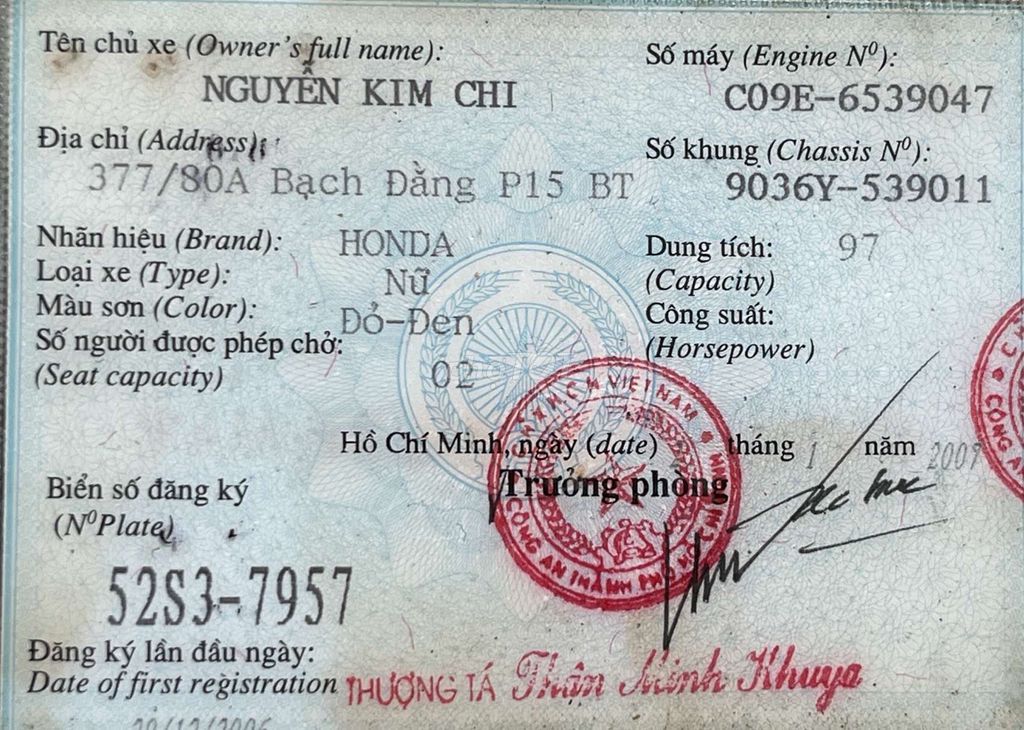 Tên chủ xe (Owner's full name):
NGUYỄN KIM CHI
Số máy (Engine N⁰):
C09E-6539047
Địa chỉ (Address):
377/80A Bạch Đằng P15 BT
Số khung (Chassis N⁰):
9036Y-539011
Nhãn hiệu (Brand): HONDA
Loại xe (Type): Nữ
Màu sơn (Color): Đỏ-Đen
Số người được phép chở:
(Seat capacity) 02
Dung tích: 97
(Capacity)
Công suất:
(Horsepower)
Hồ Chí Minh, ngày (date) tháng 1 năm 2007
Trưởng phòng
CHXHCN VIỆT NAM
CÔNG AN THÀNH PHỐ HỒ CHÍ MINH
Biển số đăng ký
(N⁰Plate)
52S3-7957
Đăng ký lần đầu ngày:
Date of first registration
THƯỢNG TÁ Thân Minh Khuya
CÔNG AN